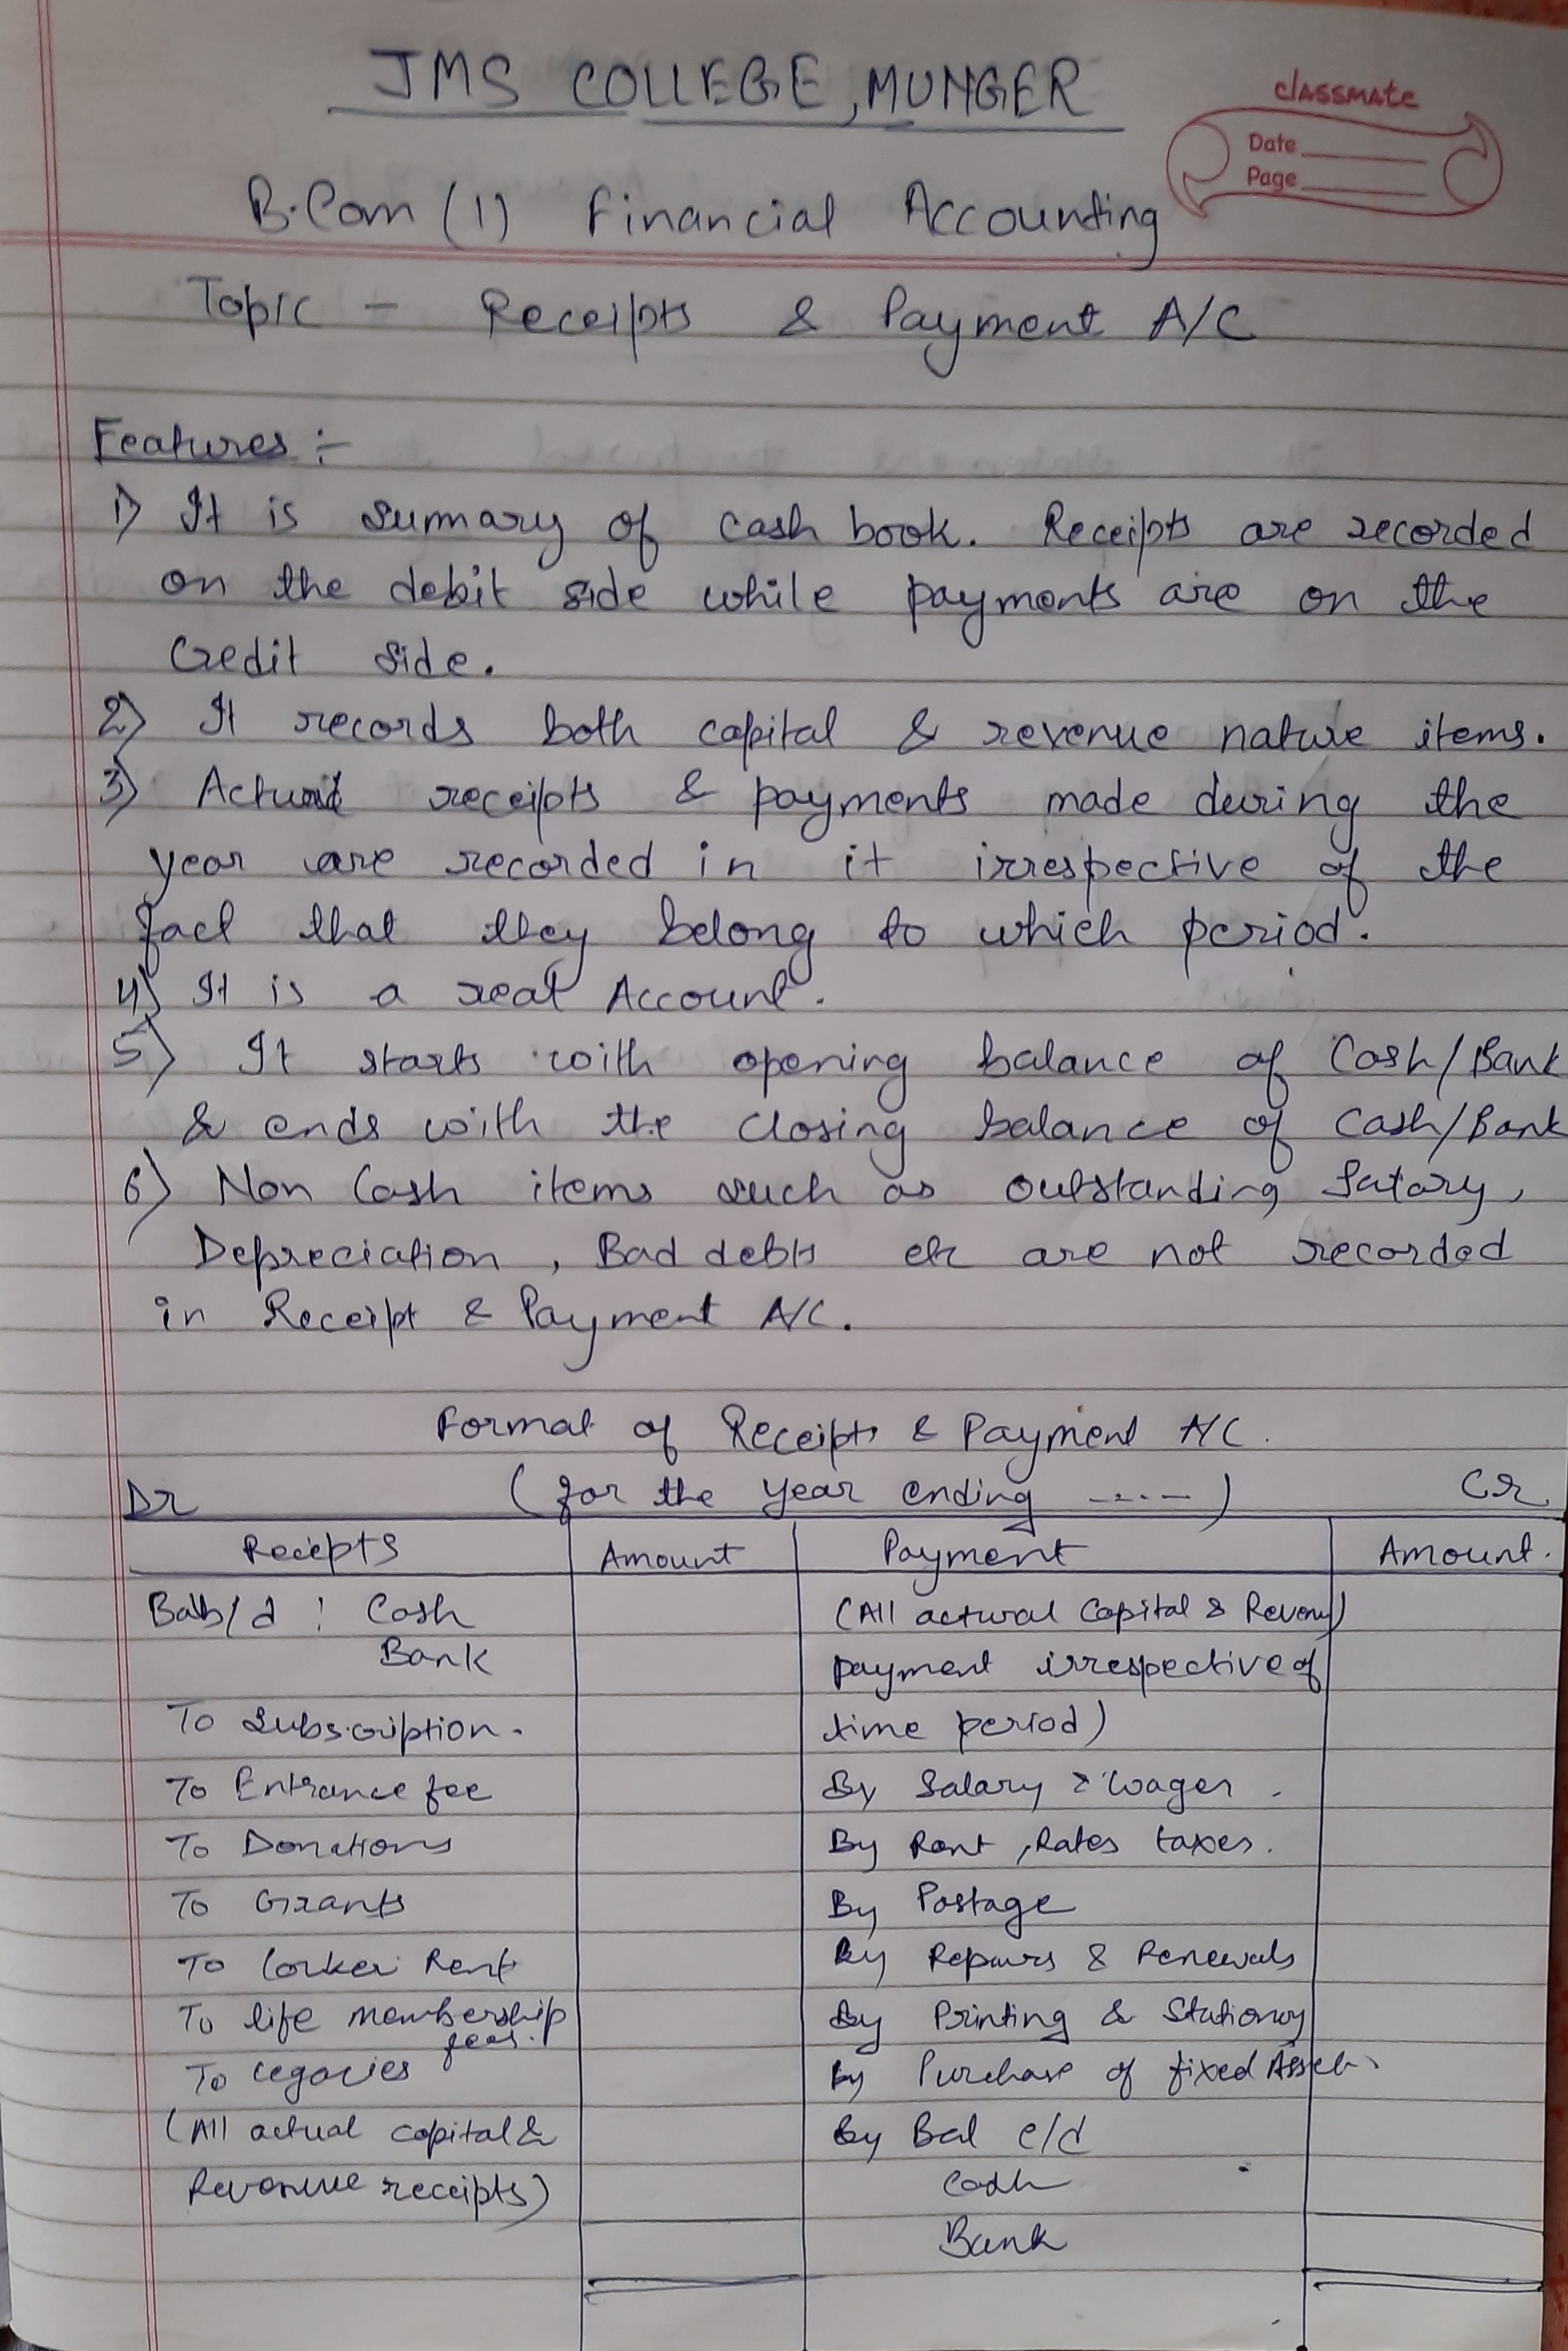 JMS COLLEGE, MUNGER
classmate
Date
Page
B.Com (1) Financial Accounting
Topic - Receipts & Payment A/C
Features :-
1) It is summary of cash book. Receipts are recorded
on the debit side while payments are on the
Credit side.
2) It records both capital & revenue nature items.
3) Actual receipts & payments made during the
year are recorded in it irrespective of the
fact that they belong to which period.
4) It is a real Account.
5) It starts with opening balance of Cash/Bank
& ends with the closing balance of Cash/Bank
6) Non Cash items such as outstanding Salary,
Depreciation, Bad debts etc are not recorded
in Receipt & Payment A/C.
Format of Receipts & Payment A/C.
Dr (for the year ending -----) Cr.
Reciepts Amount Payment Amount.
Balb/d : Cash (All actural Capital & Revenu)
Bank payment irrespective of
To Subscription. time period)
To Entrance fee By Salary & Wages.
To Donations By Rent, Rates taxes.
To Grants By Postage
To Locker Rent By Repairs & Renewals
To life membership By Printing & Stationary
fees.
To Legacies By Purchase of fixed Assets
(All actual capital & By Bal c/d
Revenue receipts) Cash
Bank